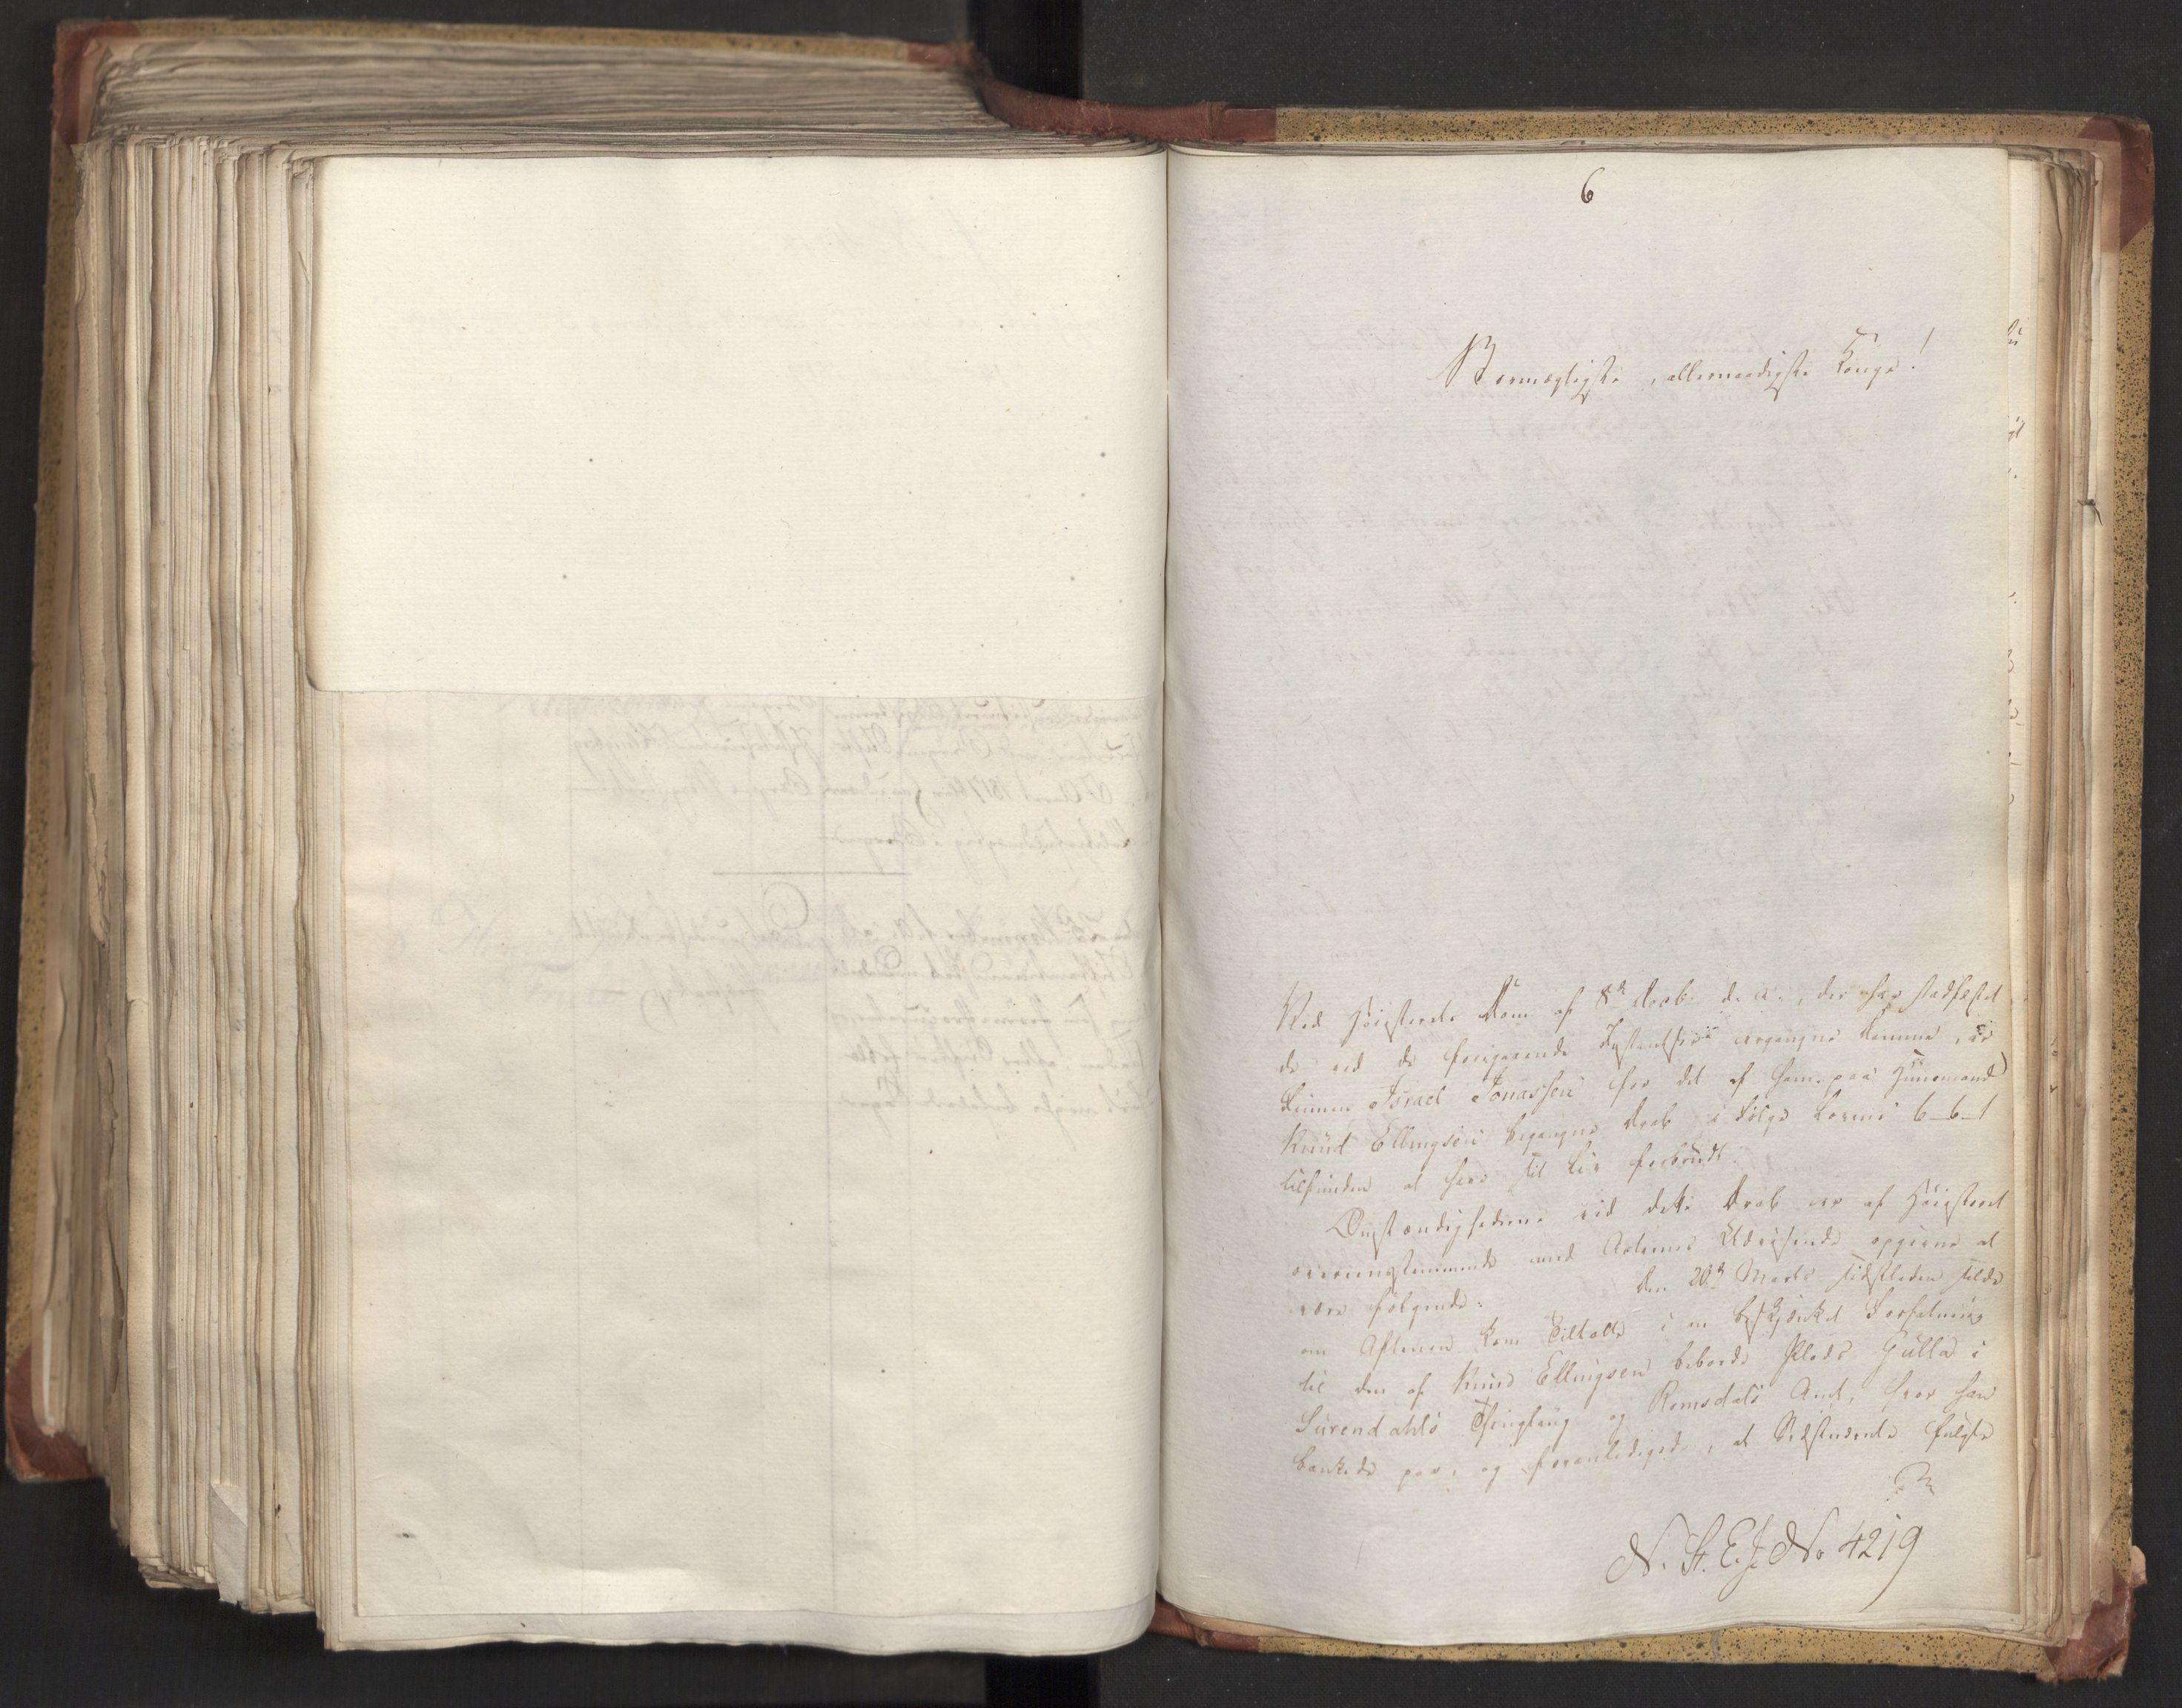 6
Stormægtigste, allernaadigste Konge!
Ved Høiesterets Dom af 8de Decbr. d. A., der har stadfæstet
de ved de foregaaende Instantser ergangne Domme, er
Qvinden Israel Jonassen for det af ham paa Huusmand
Knud Ellingsen begangne Drab i Følge Lovens 6-6-1
tilfunden at have sit Liv forbrudt.
Omstændighederne ved dette Drab ere af Høiesteret
overeensstemmende med Acternes Udviisende opgivne at
være følgende:
Den 20de Marts sidstleden silde
om Aftenen kom Tiltalte i en beskjænket Forfatning
til den af Knud Ellingsen beboede Plads Gulla i
Surendahls Thinglaug og Romsdals Amt, hvor han
bankede paa, og foranledigede, at Vedkommende fulgte
N. St. E. J. No 4219